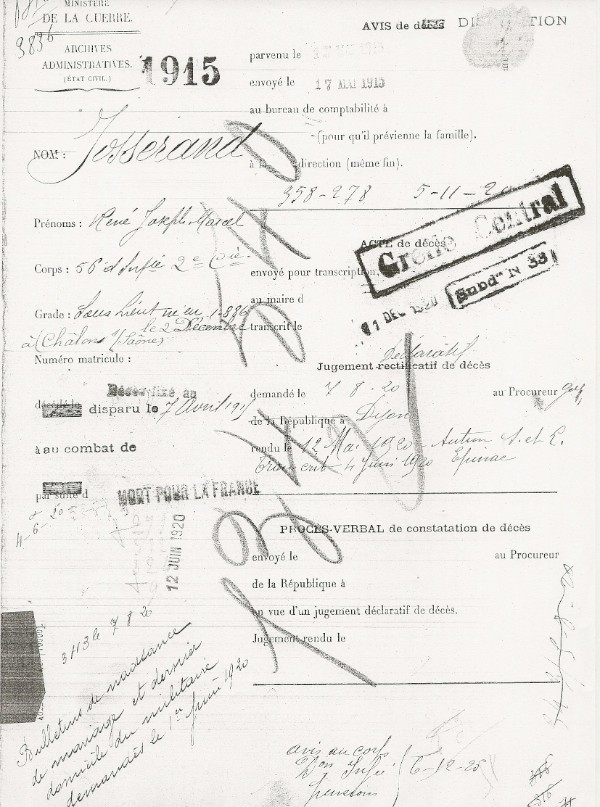 MINISTÈRE
DE LA GUERRE.
3836
ARCHIVES
ADMINISTRATIVES.
(ÉTAT CIVIL.)
1915
AVIS de décès DISPARITION
parvenu le
envoyé le 17 MAI 1915
au bureau de comptabilité à
(pour qu'il prévienne la famille).
NOM : Josserand
à la direction (même fin).
358-278 5-11-20
Prénoms : René Joseph Marcel
Grefe Central
Subdon N 33
ACTE de décès
Corps : 56e d'Infie 2e Cie
envoyé pour transcription,
au maire d
Grade : Sous Lieut né en 1886
le 2 Décembre
à (Châlons s/Saône)
transcrit le
31 DEC 1920
Numéro matricule :
Déclaratif
Jugement rectificatif de décès
Décès fixé au
demandé le 7 8-20 au Procureur
décédé le disparu le 7 Avril 1915
de la République à Dijon
à au combat de
rendu le 12 Mai 1920 - Autun S. et L.
Transcrit 4 Juin 1920 Epinac
par suite d
MORT POUR LA FRANCE
4-6-20
12 JUIN 1920
PROCÈS-VERBAL de constatation de décès
envoyé le au Procureur
de la République à
en vue d'un jugement déclaratif de décès.
Jugement rendu le
3113 le 7 8 20
Bulletins de naissance
de mariage et dernier
domicile du militaire
demandés le 1er Juin 1920
avis au corps
6-12-20